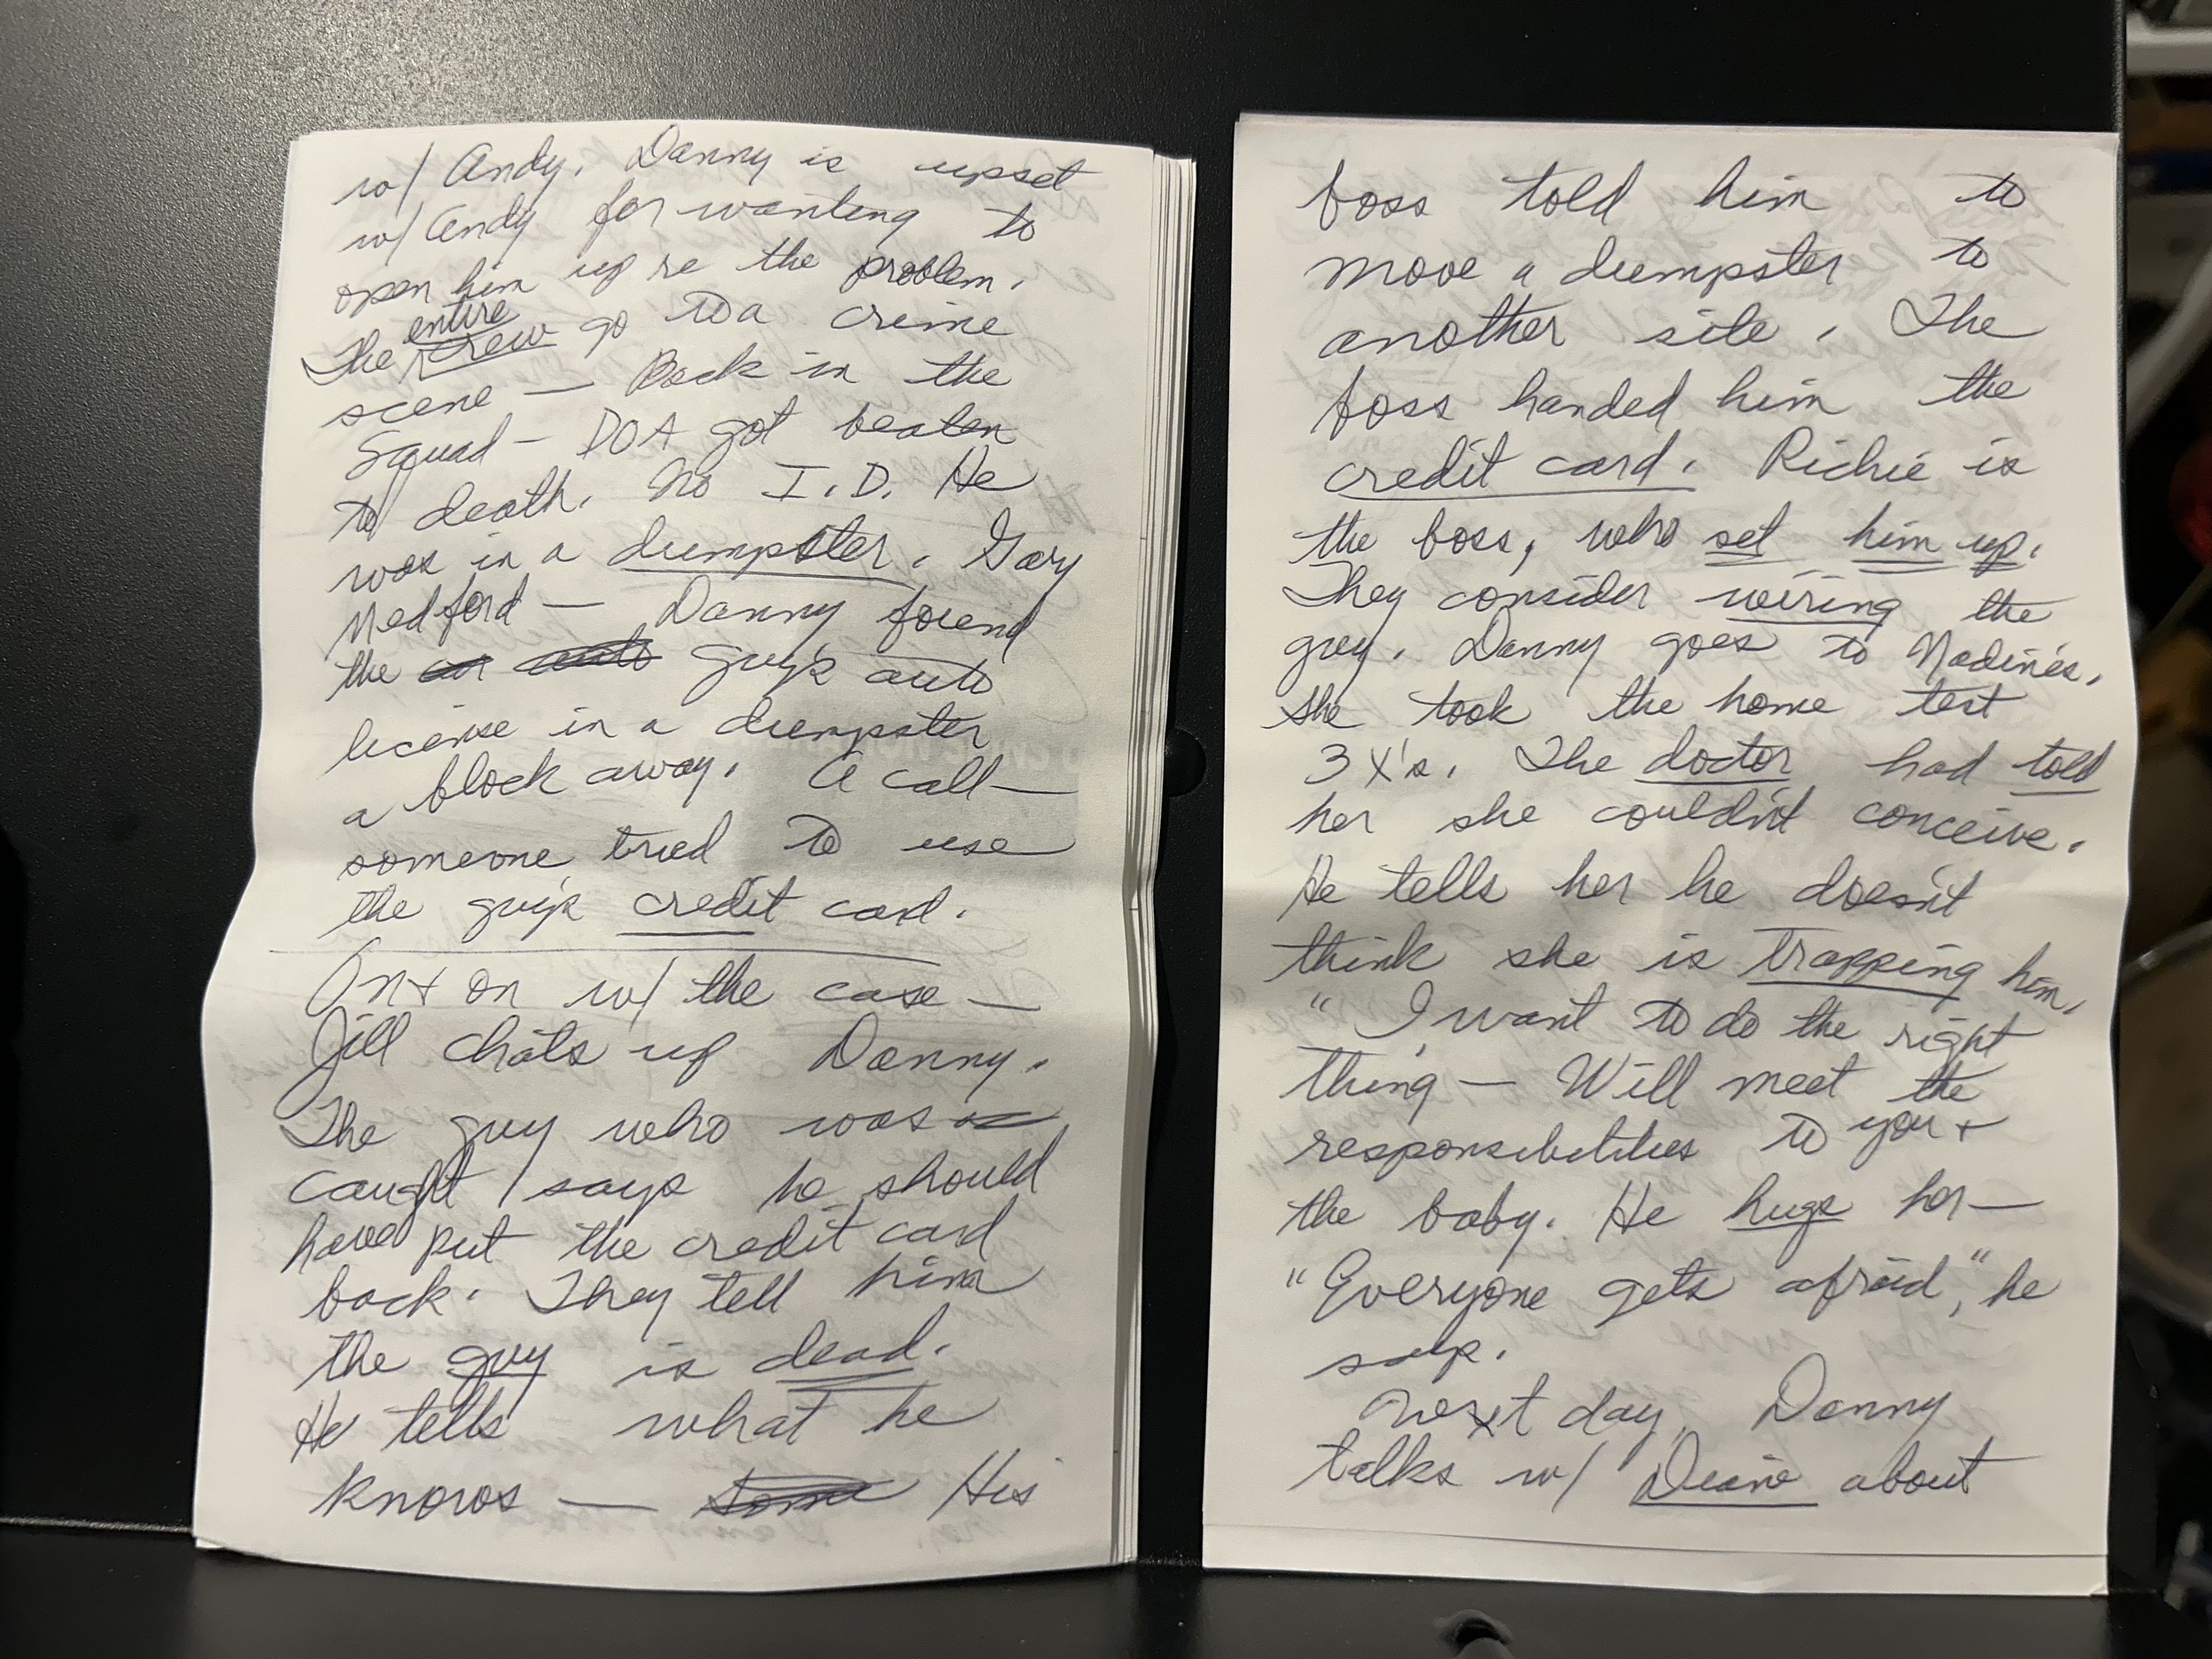 w/ Andy. Danny is upset
w/ Andy for wanting to
open him up re the problem.
The entire crew go to a crime
scene — Back in the
Squad — DOA got beaten
to death. No I.D. He
was in a dumpster. Gary
Medford — Danny found
the car auto guy's auto
license in a dumpster
a block away. A call —
someone tried to use
the guy's credit card.
On + on w/ the case —
Jill chats up Danny.
The guy who was
caught says he should
have put the credit card
back. They tell him
the guy is dead.
He tells what he
knows — some His
boss told him to
move a dumpster to
another site. The
boss handed him the
credit card. Richie is
the boss, who set him up.
They consider wiring the
guy. Danny goes to Nadine's.
she took the home test
3 X's. The doctor had told
her she couldn't conceive.
He tells her he doesn't
think she is trapping him.
" I want to do the right
thing — Will meet the
responsibilities to you +
the baby. He hugs her —
"Everyone gets afraid", he
says.
Next day, Danny
talks w/ Diane about